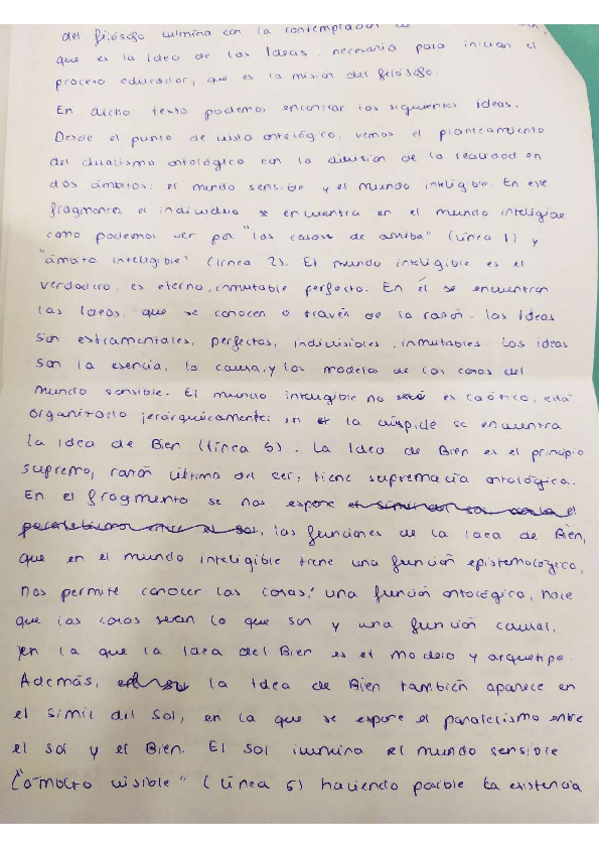 del filósofo culmina con la contemplación
que es la Idea de las Ideas, necesaria para iniciar el
proceso educador, que es la misión del filósofo.
En dicho texto podemos encontrar las siguientes ideas.
Desde el punto de vista ontológico, vemos el planteamiento
del dualismo ontológico con la división de la realidad en
dos ámbitos: el mundo sensible y el mundo inteligible. En este
fragmento, el individuo se encuentra en el mundo inteligible
como podemos ver por "las cosas de arriba" (línea 1) y
"ámbito inteligible" (línea 2). El mundo inteligible es el
verdadero, es eterno, inmutable perfecto. En él se encuentran
las Ideas, que se conocen a través de la razón. Las Ideas
son extramentales, perfectas, indivisibles, inmutables. Las ideas
son la esencia, la causa, y los modelos de las cosas del
mundo sensible. El mundo inteligible no es caótico, está
organizado jerárquicamente: en la cúspide se encuentra
la Idea de Bien (línea 5). La Idea de Bien es el principio
supremo, razón última del ser, tiene supremacía ontológica.
En el fragmento se nos expone
las funciones de la Idea de Bien,
que en el mundo inteligible tiene una función epistemológica,
nos permite conocer las cosas; una función ontológica, hace
que las cosas sean lo que son y una función causal,
en la que la Idea del Bien es el modelo y arquetipo.
Además, la Idea de Bien también aparece en
el símil del Sol, en la que se expone el paralelismo entre
el sol y el Bien. El Sol ilumina el mundo sensible
"ámbito visible" (línea 6) haciendo posible la existencia